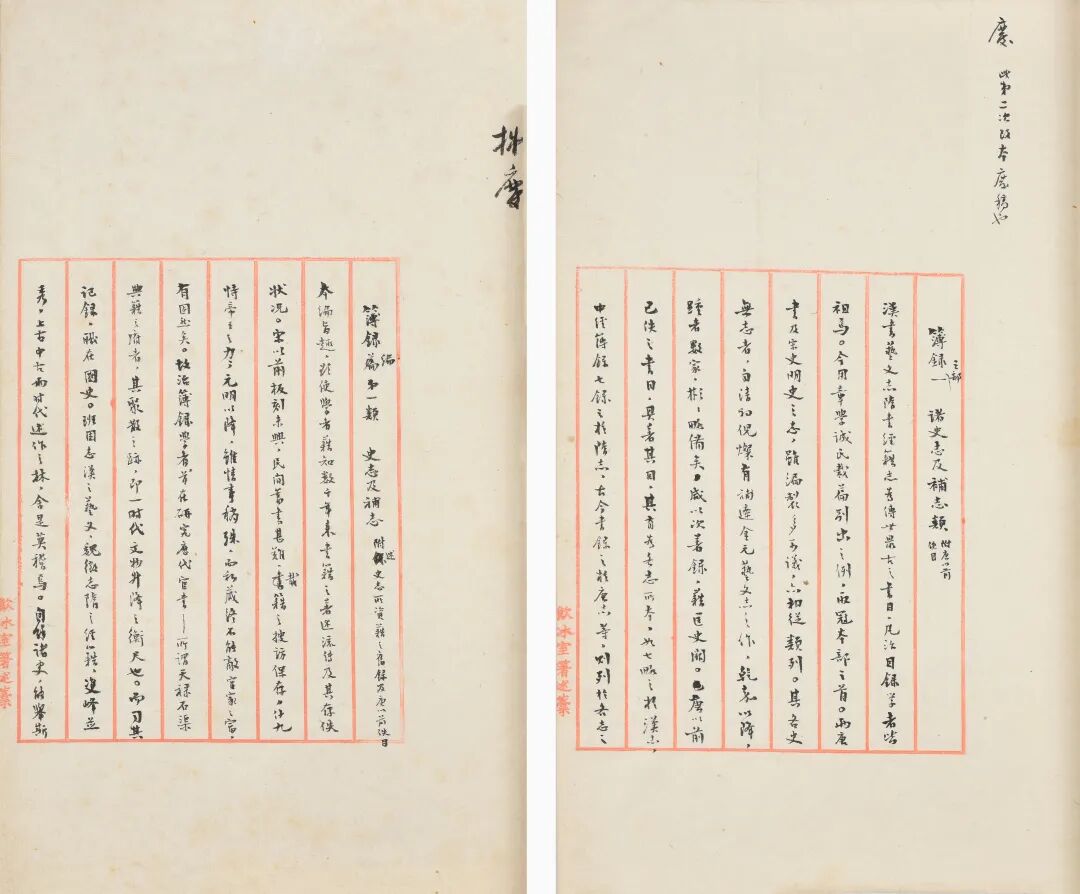 廢
此第二次改本廢稿也
簿録之部一 諸史志及補志類 附唐以前佚目
漢書藝文志隋書經籍志為傳世最古之書目凡治目録學者皆
祖焉。今用章學誠氏裁篇別出之例,取冠本部之首。兩唐
書及宋史明史之志,雖漏製多可議,亦相從類列。其各史
無志者,自清初倪燦有補遼金元藝文志之作,乾嘉以降,
踵者數家,彬彬略備矣,咸以次著録,藉匡史闕。唐以前
已佚之書目,其著其目,其有為各志所本,如七略之於漢志,
中經簿録七録之於隋志,古今書録之於唐志等,則列於各志之
飲冰室箸述藁
廢
簿録編第一類 史志及補志 附述史志所資藉之舊録及唐以前佚目
本編旨趣,既使學者藉知數千年來書籍之著述流傳及其存佚
狀况。宋以前板刻未興,民間蓄書甚難,載籍之搜訪保存,什九
恃帝王之力,元明以降,雖情事稍殊,而私藏終不能敵官家之富,
有固然矣。故治簿録學者首在研究歷代官書——所謂天禄石渠
典籍之府者,其聚散之跡,即一時代文物升降之衡尺也。而司其
記録,職在國史。班固志漢之藝文,魏徵志隋之經籍,雙峰並
秀,上古中古兩時代述作之林,舍是莫稽焉。自餘諸史,能舉斯
飲冰室箸述藁